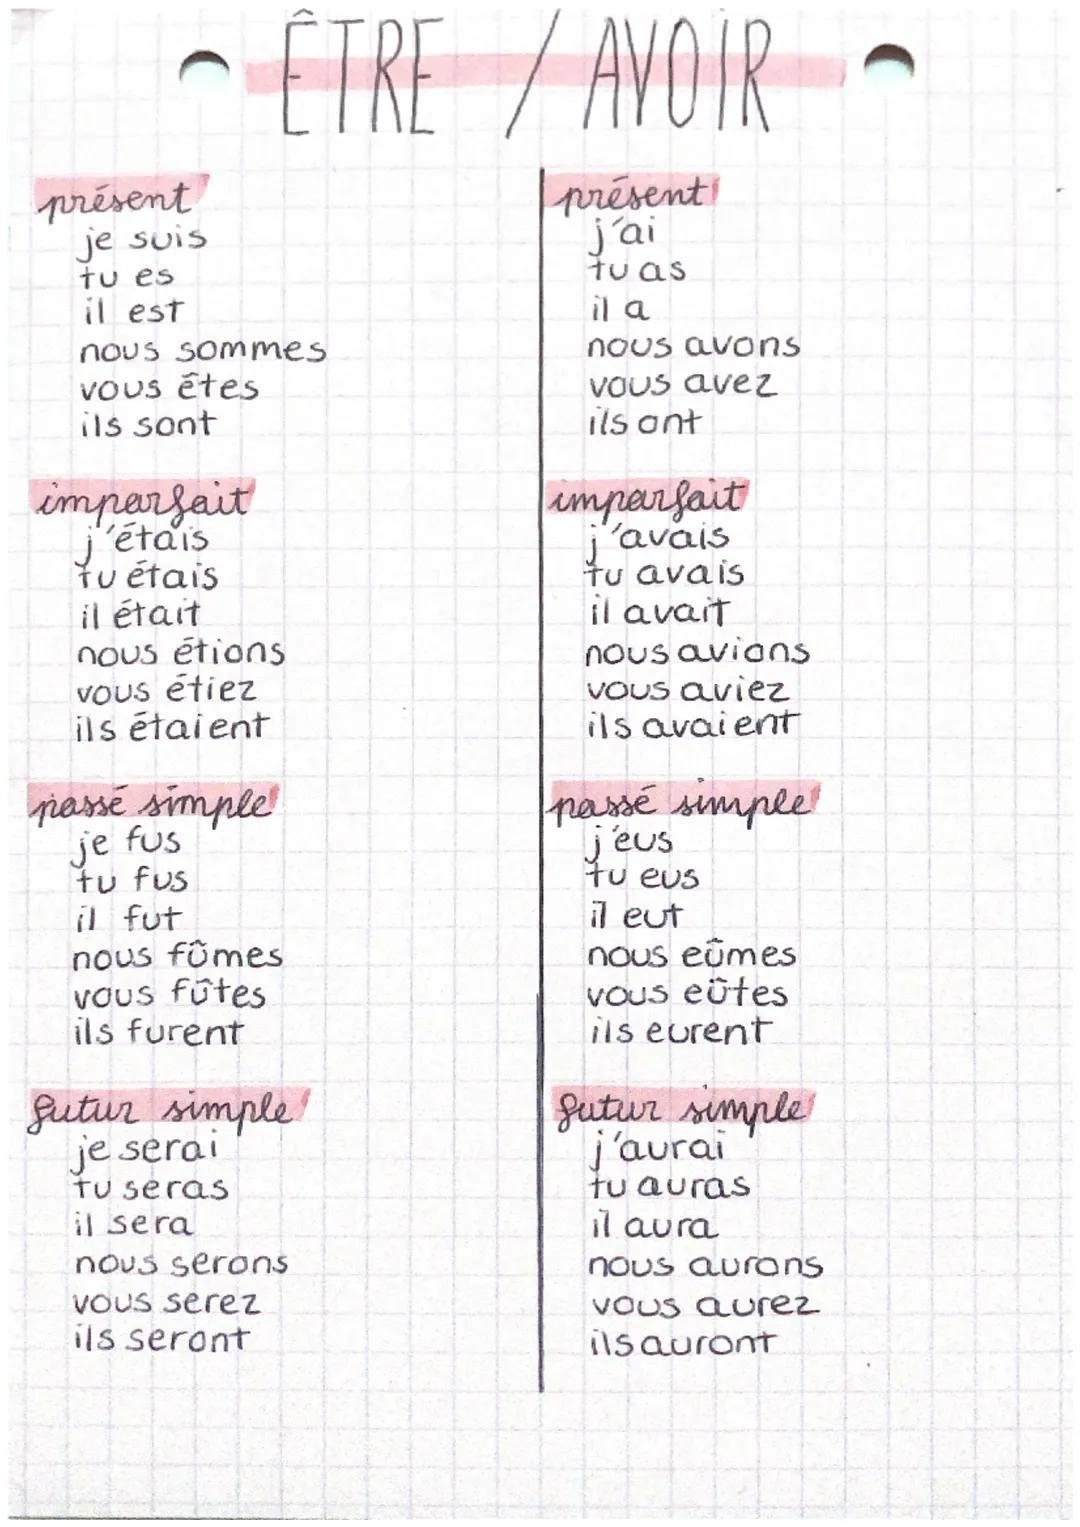 ÊTRE / AVOIR
présent
je suis
tu es
il est
nous sommes
vous êtes
ils sont
imparfait
j'étais
tu étais
il était
nous étions
vous étiez
ils étaient
passé simple
je fus
tu fus
il fut
nous fûmes
vous fûtes
ils furent
futur simple
je serai
tu seras
il sera
nous serons
vous serez
ils seront
présent
j'ai
tu as
il a
nous avons
vous avez
ils ont
imparfait
j'avais
tu avais
il avait
nous avions
vous aviez
ils avaient
passé simple
j'eus
tu eus
il eut
nous eûmes
vous eûtes
ils eurent
futur simple
j'aurai
tu auras
il aura
nous aurons
vous aurez
ils auront